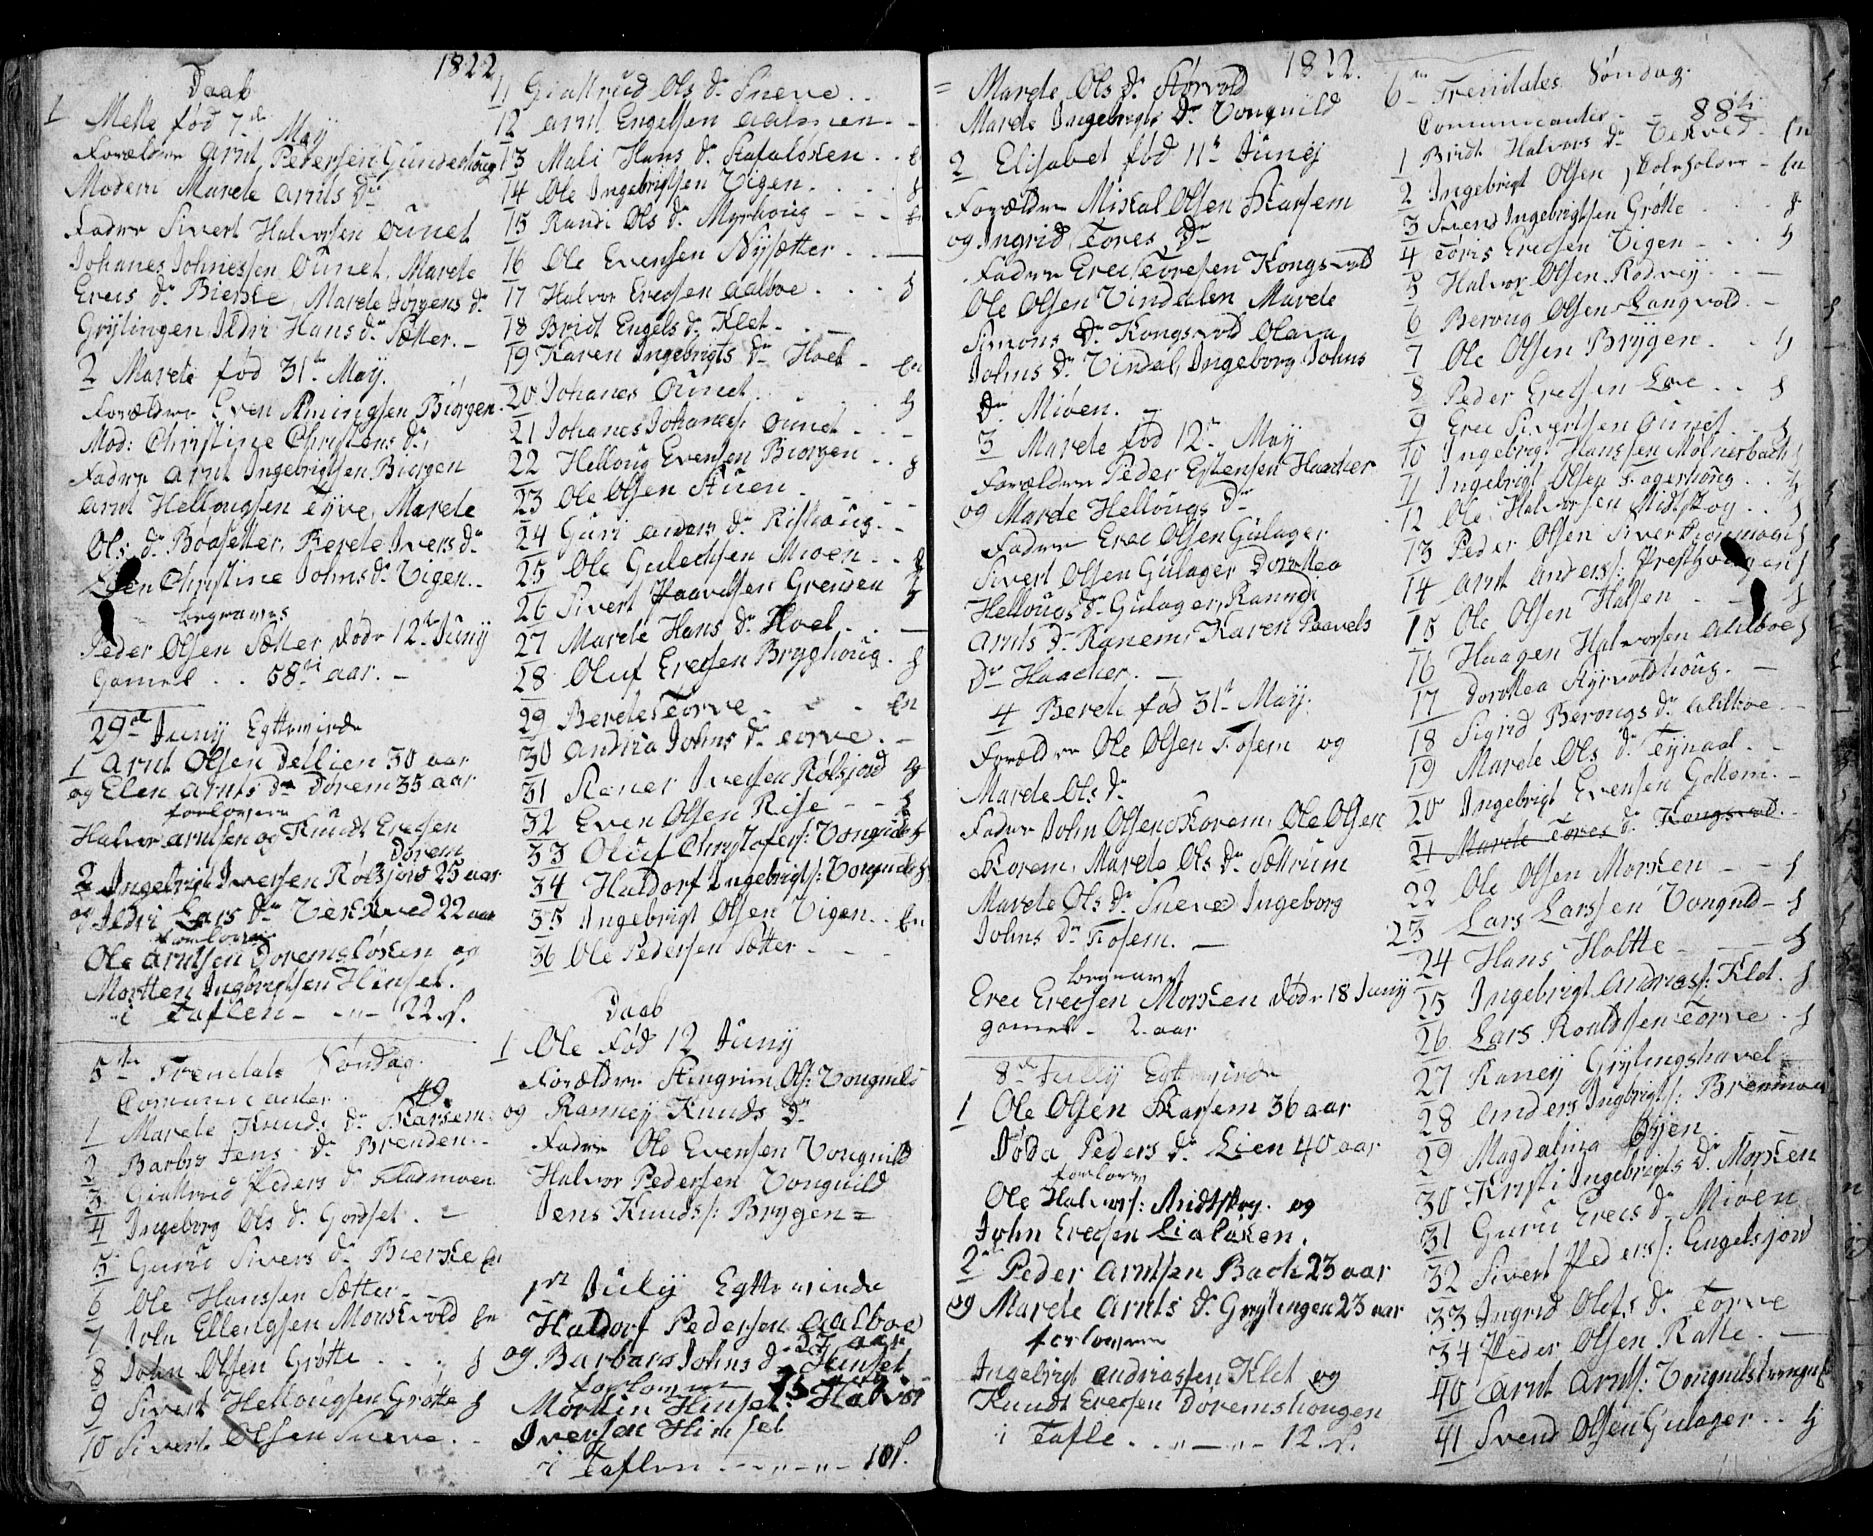 1822
Daab
1 Mette fød 7de May
Forældre Arnt Pedersen Gunderhoug
Modern Marete Arnts Dr
Fadrre Sivert Halvorsen Øunet
Johanes Johnessen Øunet, Marete
Erecs Dr Bierke, Marete Jørgens Dr
Grytingen Ildri Hans Dr Sætter. —
2 Marete fød 31te May.
Forældre Even Amingsen Biørgen
Mod: Christine Christens Dr,
Fadrre Arnt Ingebrigtsen Biørgen
Arnt Hellougsen Tyve, Marete
Ols Dr Boasetter, Berete Ivers Dr
Lien Christine Johns Dr Vigen. —
begraves
Peder Olsen Sætter døde 12te Juny
gamel . . 58 aar. —
29de Juny Egteviede
1 Arnt Olsen Dellien 30 aar
og Elen Arnts Dr Dorem 35 aar
forlovere
Halvor Arntsen og Knudt Erecsen
Dorem
2 Ingebrigt Iversen Rølsjord 25 aar
og Ildri Lars Dr Vekved 22 aar
forlovere
Ole Arntsen Doremsløken og
Mortten Ingbrigtsen Hinset.
i Taflen — „ — 22 s.
5te Trenitatis Søndag.
Comunicanter . 49.
1 Marete Knuds Dr Skarsem
2 Barbro Jens Dr Brenden. —
3 Giattrud Peders Dr Fladmoen
4 Ingeborg Ols Dr Gorset . —
5 Guru Sivers Dr Bierke En
6 Ole Hanssen Sætter —
7 John Ellengsen Monskvold En
8 John Olsen Grøtte . . . §
9 Sivert Hellougsen Grøtte §
10 Sivert Olsen Sneve . —
11 Giattrud Ols Dr Sneve . .
12 Arnt Engelsen Aalmen — —
13 Mali Hans Dr Stafalsken . . E
14 Ole Ingebrigtsen Vigen . . . . §
15 Randi Ols Dr Myrhoug — — — E
16 Ole Evensen Nysætter . . —
17 Halvor Erecsen Aalboe . . . §
18 Bridt Engels Dr Klet . . —
19 Karen Ingebrigts Dr Hoel — En
20 Johanes Øunet . . . . §
21 Johanes Johaness: Øunet . . —
22 Helloug Evensen Biørgen . . §
23 Ole Olsen Stuen — . — —
24 Guri Anders Dr Risthoug . —
25 Ole Gulechsen Mioen . . §
26 Sivert Paavelsen Grensen §
27 Marete Hans Dr Hoel . . —
28 Oluf Erecsen Bryghoug . §
29 Berete Torve . — . En
30 Andrea Johns Dr Torve . —
31 Rener Iversen Rølsjord §
32 Even Olsen Rise — — §
33 Oluf Christofers: Vonguild §
34 Haldorf Ingebrigts: Vonguild §
35 Ingebrigt Olsen Vigen . . En
36 Ole Pedersen Sætter — — —
Daab
1 Ole Fød 12 Juny
Forældre Stengrim Ols: Vonguild
og Ranney Knuds Dr
Fadre Ole Evensen Vonguild
Halvor Pedersen Vonguild
Jens Knuds: Brygen =
1ste July Egteviede
Haldorf Pedersen Aalboe
27 aar
og Barbara Johns Dr Hinset
forlovere
Mortten Hinset: Halvor
Iversen Hinset
i Taflen — „ — „ — 101.
1822.
= Marete Ols Dr Storvold
Marete Ingebrigts Dr Vonguild
2 Elisabet fød 11te Juny
Forældre Mikal Olsen Skarsem
og Ingrid Tores Dr
Fadrre Erec Toresen Kongsvold
Ole Olsen Vindalen Marete
Simons Dr Kongsvold Olava
Johns Dr Vindal, Ingeborg Johns
Dr Mioen. —
3 Marete fød 12te May
Forældre Peder Estensen Haacker
og Marete Hellougs Dr
Fadrre Erec Olsen Gulager
Sivert Olsen Gulager Dorottea
Hellougs Dr Gulager, Rannou
Arnts Dr Ranem, Karen Paavels
Dr Haacker. —
4 Berete fød 31te May.
Forældre Ole Olsen Fosem og
Marete Ols Dr
Fadrre John Olsen Skorem, Ole Olsen
Skorem, Marete Ols Dr Sættrum
Marete Ols Dr Sneve Ingeborg
Johns Dr Fosem. —
begravet
Erec Erecsen Morken døde 18 Juny
gamel — 2 aar
8de July Egteviede
1 Ole Olsen Skarsem 36 aar
Døda Peders Dr Lien 40 aar
forlovere
Ole Halvors: Midtskog. og
John Erecsen Lialøken.
2 Peder Arntsen Bach 23 aar
og Marete Arnts Dr Grytingen 23 aar
forlovere
Ingebrigt Andriassen Klet og
Knudt Erecsen Doremshougen
i Tafle . . „ — „ — 12 s.
6te Trenitates Søndag.
Comunicanter — 88
1 Bridt Halvors Dr Vekved — En
2 Ingebrigt Olsen Skoleholder — En
3 Svend Ingebrigtsen Grøtte . . . §
4 Toris Erecsen Vigen — . . §
5 Halvor Olsen Rodvey . . —
6 Beroug Olsen Langvold . —
7 Ole Olsen Brygen . . §
8 Peder Erecsen Loe . . §
9 Erec Sivertsen Øunet . . §
10 Ingebrigt Hanssen Mølnerbach §
11 Ingebrigt Olsen Fagerhoug . . §
12 Ole Halvorsen Midtskog . . §
13 Peder Olsen Sivertsionmoe §
14 Arnt Anderss: Presthougen §
15 Ole Olsen Halsen — — §
16 Haagen Halvorsen Aalboe §
17 Dorottea Styrvoldhoug . —
18 Sigrid Berougs Dr Aalboe . —
19 Marete Ols Dr Tynaal . —
20 Ingebrigt Evensen Gottem . —
21 Marete Tores Dr Kongsvold . —
22 Ole Olsen Morken — — §
23 Lars Larssen Vonguld — §
24 Hans Holtte — — — §
25 Ingebrigt Andrias: Klet . §
26 Lars Roaldssen Torve . §
27 Raney Grytingshavel
28 Anders Ingbrigts: Brenmoen
29 Magdalina Byen.
30 Kristi Ingebrigts Dr Morken
31 Guru Erecs Dr Mioen
32 Sivert Peders: Engelsjord
33 Ingrid Olefs Dr Torve
34 Peder Olsen Ratte . —
40 Arnt Arnts: Vonguilstrongen
41 Svend Olsen Gulager . . §